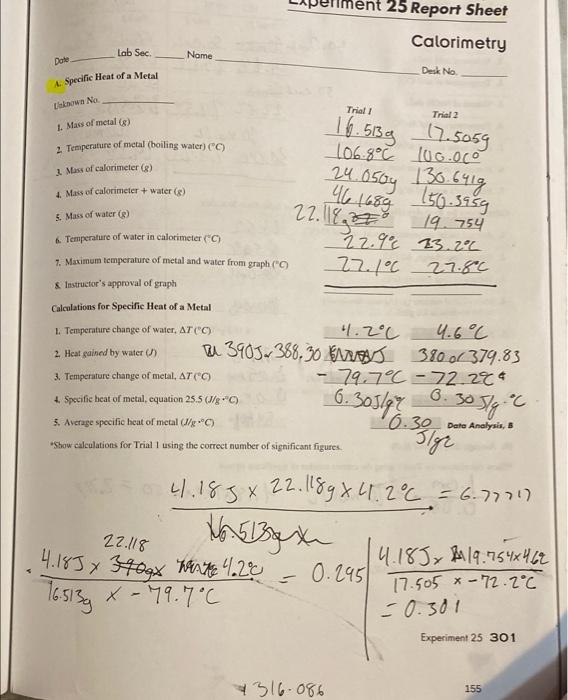 Experiment 25 Report Sheet
Calorimetry
Date Lab Sec. Name
Desk No.
A. Specific Heat of a Metal
Unknown No.
Trial 1 Trial 2
1. Mass of metal (g) 16.513g 17.505g
2. Temperature of metal (boiling water) (°C) 106.8°C 100.0C°
3. Mass of calorimeter (g) 24.050g 130.641g
4. Mass of calorimeter + water (g) 46.168g 150.395g
5. Mass of water (g) 22.118g 19.754
6. Temperature of water in calorimeter (°C) 22.9°C 23.2°C
7. Maximum temperature of metal and water from graph (°C) 27.1°C 27.8°C
8. Instructor's approval of graph
Calculations for Specific Heat of a Metal
1. Temperature change of water, ΔT (°C) 4.2°C 4.6°C
2. Heat gained by water (J) 390J 388.30 J 380 or 379.83
3. Temperature change of metal, ΔT (°C) -79.7°C -72.2°C
4. Specific heat of metal, equation 25.5 (J/g·°C) 0.30J/g°C 0.30 J/g·°C
5. Average specific heat of metal (J/g·°C) 0.30 J/g°C
Data Analysis, B
*Show calculations for Trial 1 using the correct number of significant figures.
4.18J x 22.118g x 4.2°C = 6.77717
16.513g x
22.118
4.18J x 390gx 4.2°C = 0.295
16.513g x -79.7°C
4.18J x 19.754x4.62
17.505 x -72.2°C
= 0.301
Experiment 25 301
316.086
155